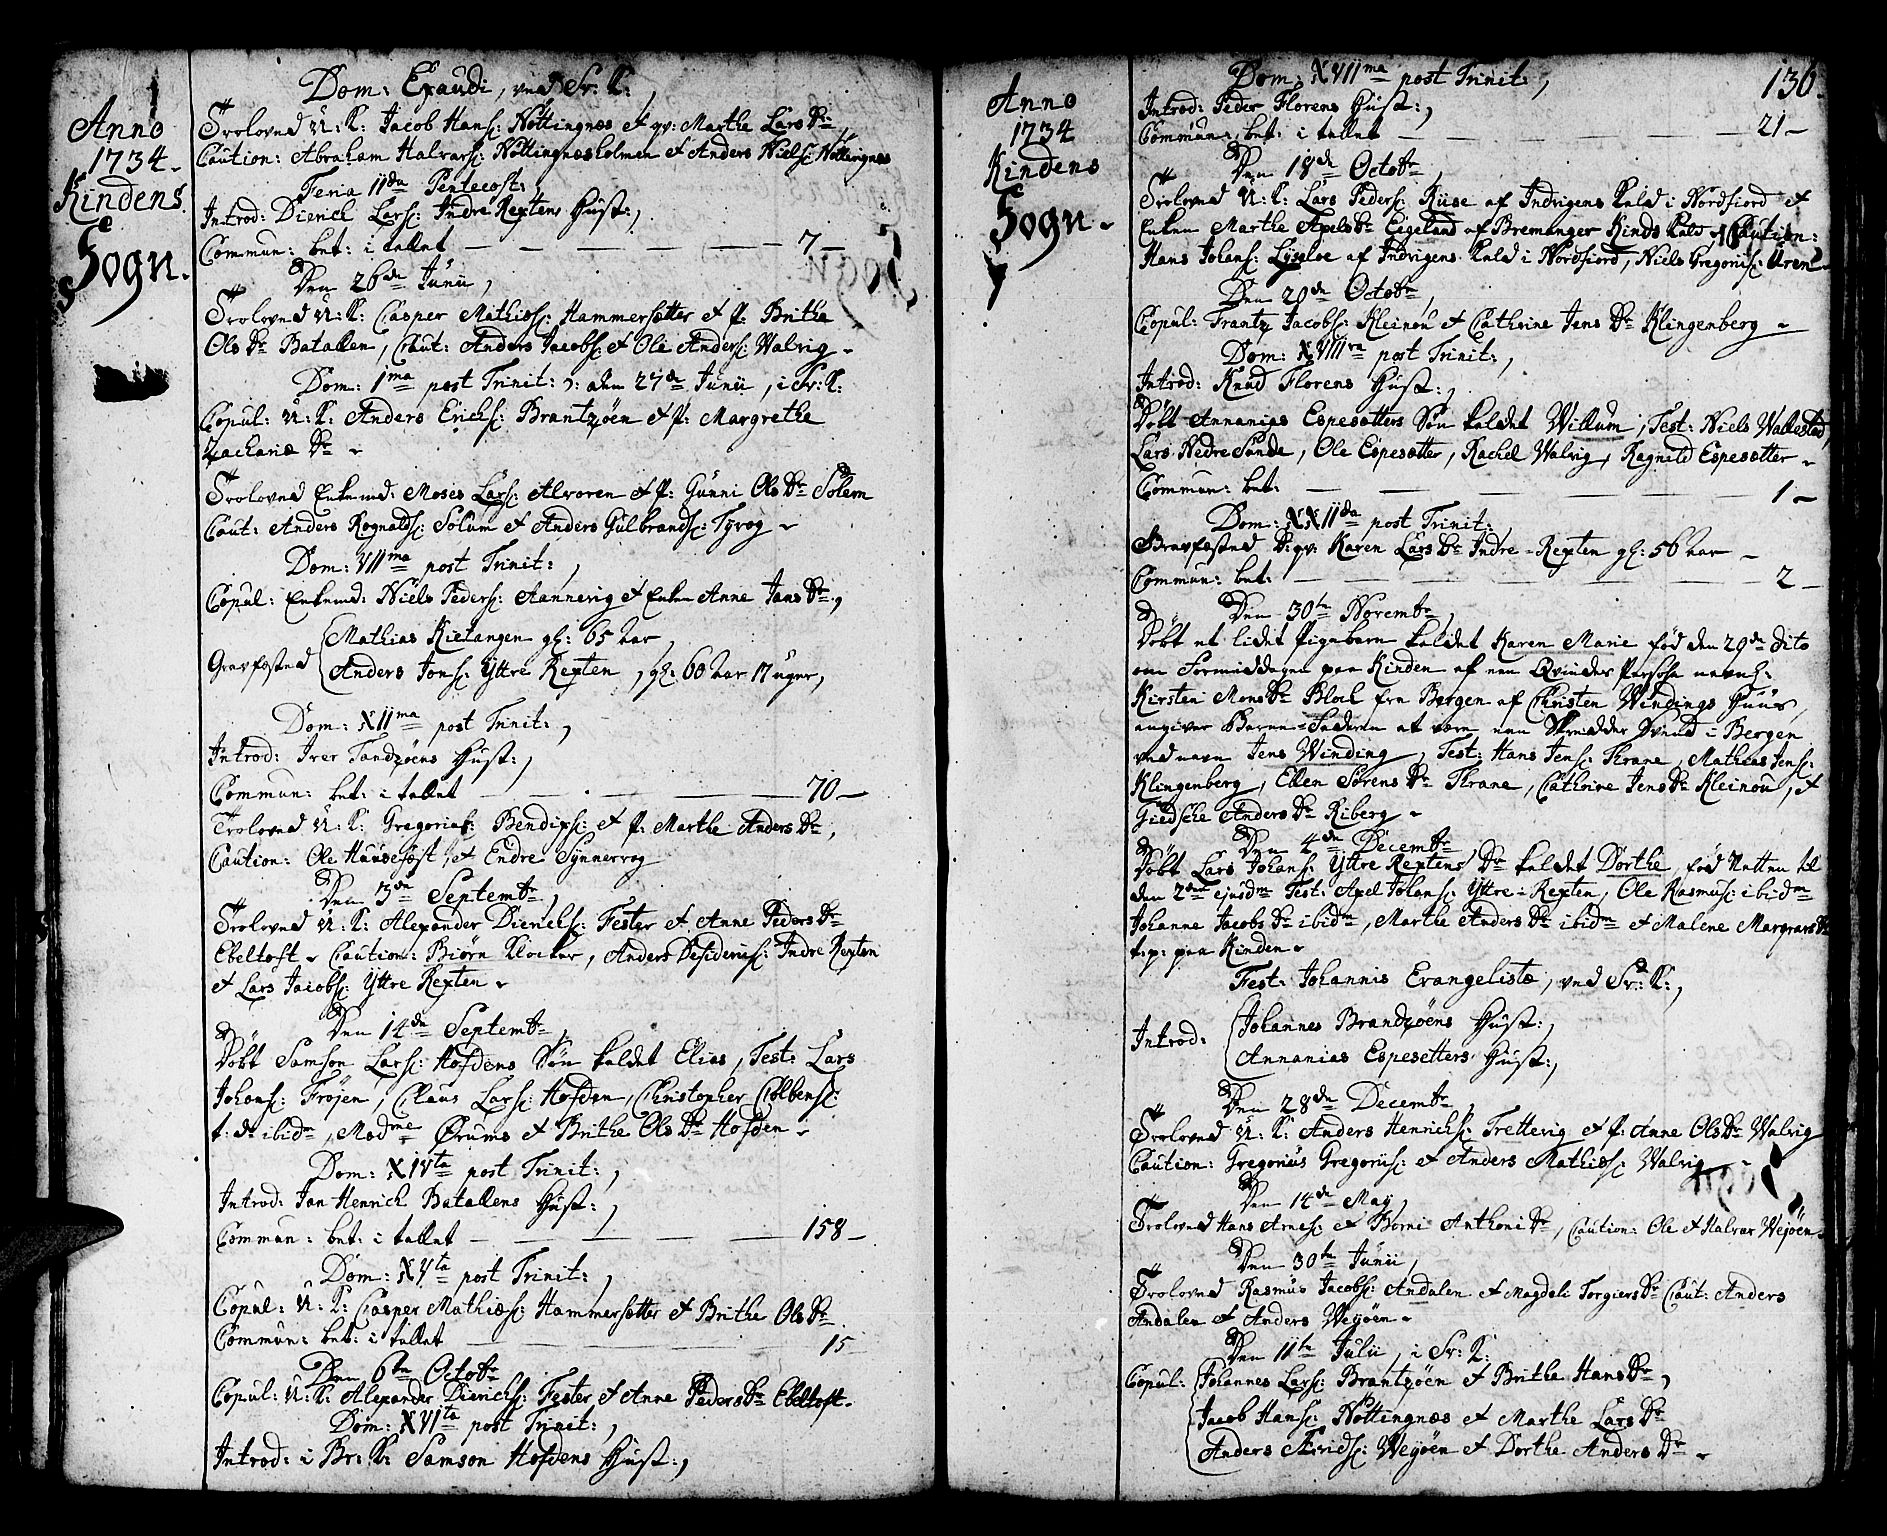 Anno
1734.
Kindens
Sogn.
Dom: Exaudi, ved Sr: K:,
Troloved U: K: Jacob Hans: Nøttingnæs et qv: Marthe Lars Dr:
Caution: Abraham Halvars: Nøttingnæsholmen et Anders Niels: Nøttingnæs
Feria IIda Pentecost:,
Introd: Dierich Lars: Indre Rextens Hust:,
Commun: bet: i tallet — — — — — 7 —
Den 26de Junii,
Troloved U: K: Casper Mathiæs: Hammersætter et P: Brithe
Ols Dr Batallen, Caut: Anders Jacobs: et Ole Anders: Walvig
Dom: 1ma post Trinit: ɔ: den 27de Junii, i Sr: K:
Copul: U: K: Anders Erichs: Brantzøen et P: Margrethe
Zachariæ Dr
Troloved Enkemd: Moses Lars: Alvoren et P: Gunni Ols Dr Solem
Caut: Anders Rognalds: Solum et Anders Gulbrands: Tyvog
Dom: VIIma post Trinit:,
Copul: Enkemd: Niels Peders: Aannevig et Enken Anne Jans Dr,
Gravfæsted
Mathias Kietangen gl: 65 Aar,
Anders Jons: Yttre Rexten, gl: 60 Aar 17 uger,
Dom: XIIma post Trinit:,
Introd: Iver Tandzøens Hust:,
Commun: bet: i tallet — — — — 70 —
Troloved U: K: Gregorius Bendixs: et P: Marthe Anders Dr,
Caution: Ole Huusefest, et Endre Synnervog
Den 3de Septembr,
Troloved U: K: Alexander Dierichs: Fester et Anne Peders Dr
Ebeltoft. Caution: Biørn Klocker, Anders Desideriis: Indre Rexten
et Lars Jacobs: Yttre Rexten
Den 14de Septembr,
Døbt Samson Lars: Hofdens Søn kaldet Elias, Test: Lars
Johans: Frøjen, Claus Lars: Hofden, Christopher Colbens:
t: d: ibidm, Madme Ørums et Brithe Ols Dr Hofden
Dom: XIVta post Trinit:,
Introd: Jan Henrich Batallens Hust:,
Commun: bet: i tallet — — — — 158 —
Dom: XVta post Trinit:,
Copul: U: K: Casper Mathiæs: Hammersætter et Brithe Ols Dr
Commun: bet: i tallet — — — 15
Den 6te Octobr
Copul: U: K: Alexander Dierichs: Fester et Anne Peders Dr Ebeltoft
Dom: XVIta post Trinit:,
Introd: i Br: K: Samson Hofdens Hust:,
136.
Anno
1734
Kindens
Sogn.
Dom: XVIIma post Trinit:,
Introd: Peder Florens Hust:,
Commun: bet: i tallet — — — — 21 —
Den 18de Octobr,
Troloved U: K: Lars Peders: Riise af Indvigens Kald i Nordfiord et
Enken Marthe Axels Dr Eigeland af Bremanger Kinds Kald. Caution:
Hans Johans: Lyseloe af Indvigens Kald i Nordfiord, Niels Gregoriis: Uren
Den 20de Octobr,
Copul: Frantz Jacobs: Kleinou et Cathrine Jens Dr Klingenberg
Dom: XVIIIva post Trinit:,
Introd: Knud Florens Hust:,
Døbt Annanias Espesetters Søn kaldet Willum, Test: Niels Wallestad,
Lars Nedre Sunde, Ole Espesætter, Rachel Walvig, Ragnild Espesætter
Commun: bet: — — — — — 1 —
Dom: XXIIda post Trinit:,
Gravfæsted P: qv: Karen Lars Dr Indre-Rexten gl: 56 Aar
Commun: bet: — — — — — 2 —
Den 30te Novembr,
Døbt et lidet Pigebarn kaldet Karen Marie fød den 29de dito
om Formiddagen paa Kinden af een Qvindes Person navnl:
Kirsten Mons Dr Bloch fra Bergen af Christen Windings Huus,
angiver Barne-Faderen at være een Skredder Svend i Bergen
ved navn Jens Winding, Test: Hans Jens: Thrane, Mathias Jens:
Klingenberg, Ellen Sørens Dr Thrane, Cathrine Jens Dr Kleinou, et
Giedsche Anders Dr Riberg
Den 4de Decembr,
Døbt Lars Johans: Yttre Rextens Dr kaldet Dorthe, fød Natten til
den 2den ejusdm Test: Axel Johans: Yttre-Rexten, Ole Rasmus: ibidm
Johanne Jacobs Dr ibidm, Marthe Anders Dr ibidm et Malene Margrars Dr
t: p: paa Kinden
Fest: Johannis Evangelistæ, ved Sr: K:,
Introd:
Johannes Brandzøens Hust:,
Annanias Espesetters Hust:,
Den 28de Decembr,
Troloved U: K: Anders Henrichs: Trettevig et P: Anne Ols Dr Walvig
Caution: Gregorius Gregoriis: et Anders Mathiæs: Walvig
Den 14de Maij,
Troloved Hans Arnes: et Borni Anthoni Dr, Caution: Ole et Halvar Wejøen
Den 30te Junii,
Troloved Rasmus Jacobs: Andalen et Magdeli Torgiers Dr Caut: Anders
Andalen et Anders Weyøen
Den 11te Julii, i Sr: K:
Copul: Johannes Lars: Brantzøen et Brithe Hans Dr,
Jacob Hans: Nøttingnæs et Marthe Lars Dr
Anders Weyøen et Dorthe Anders Dr